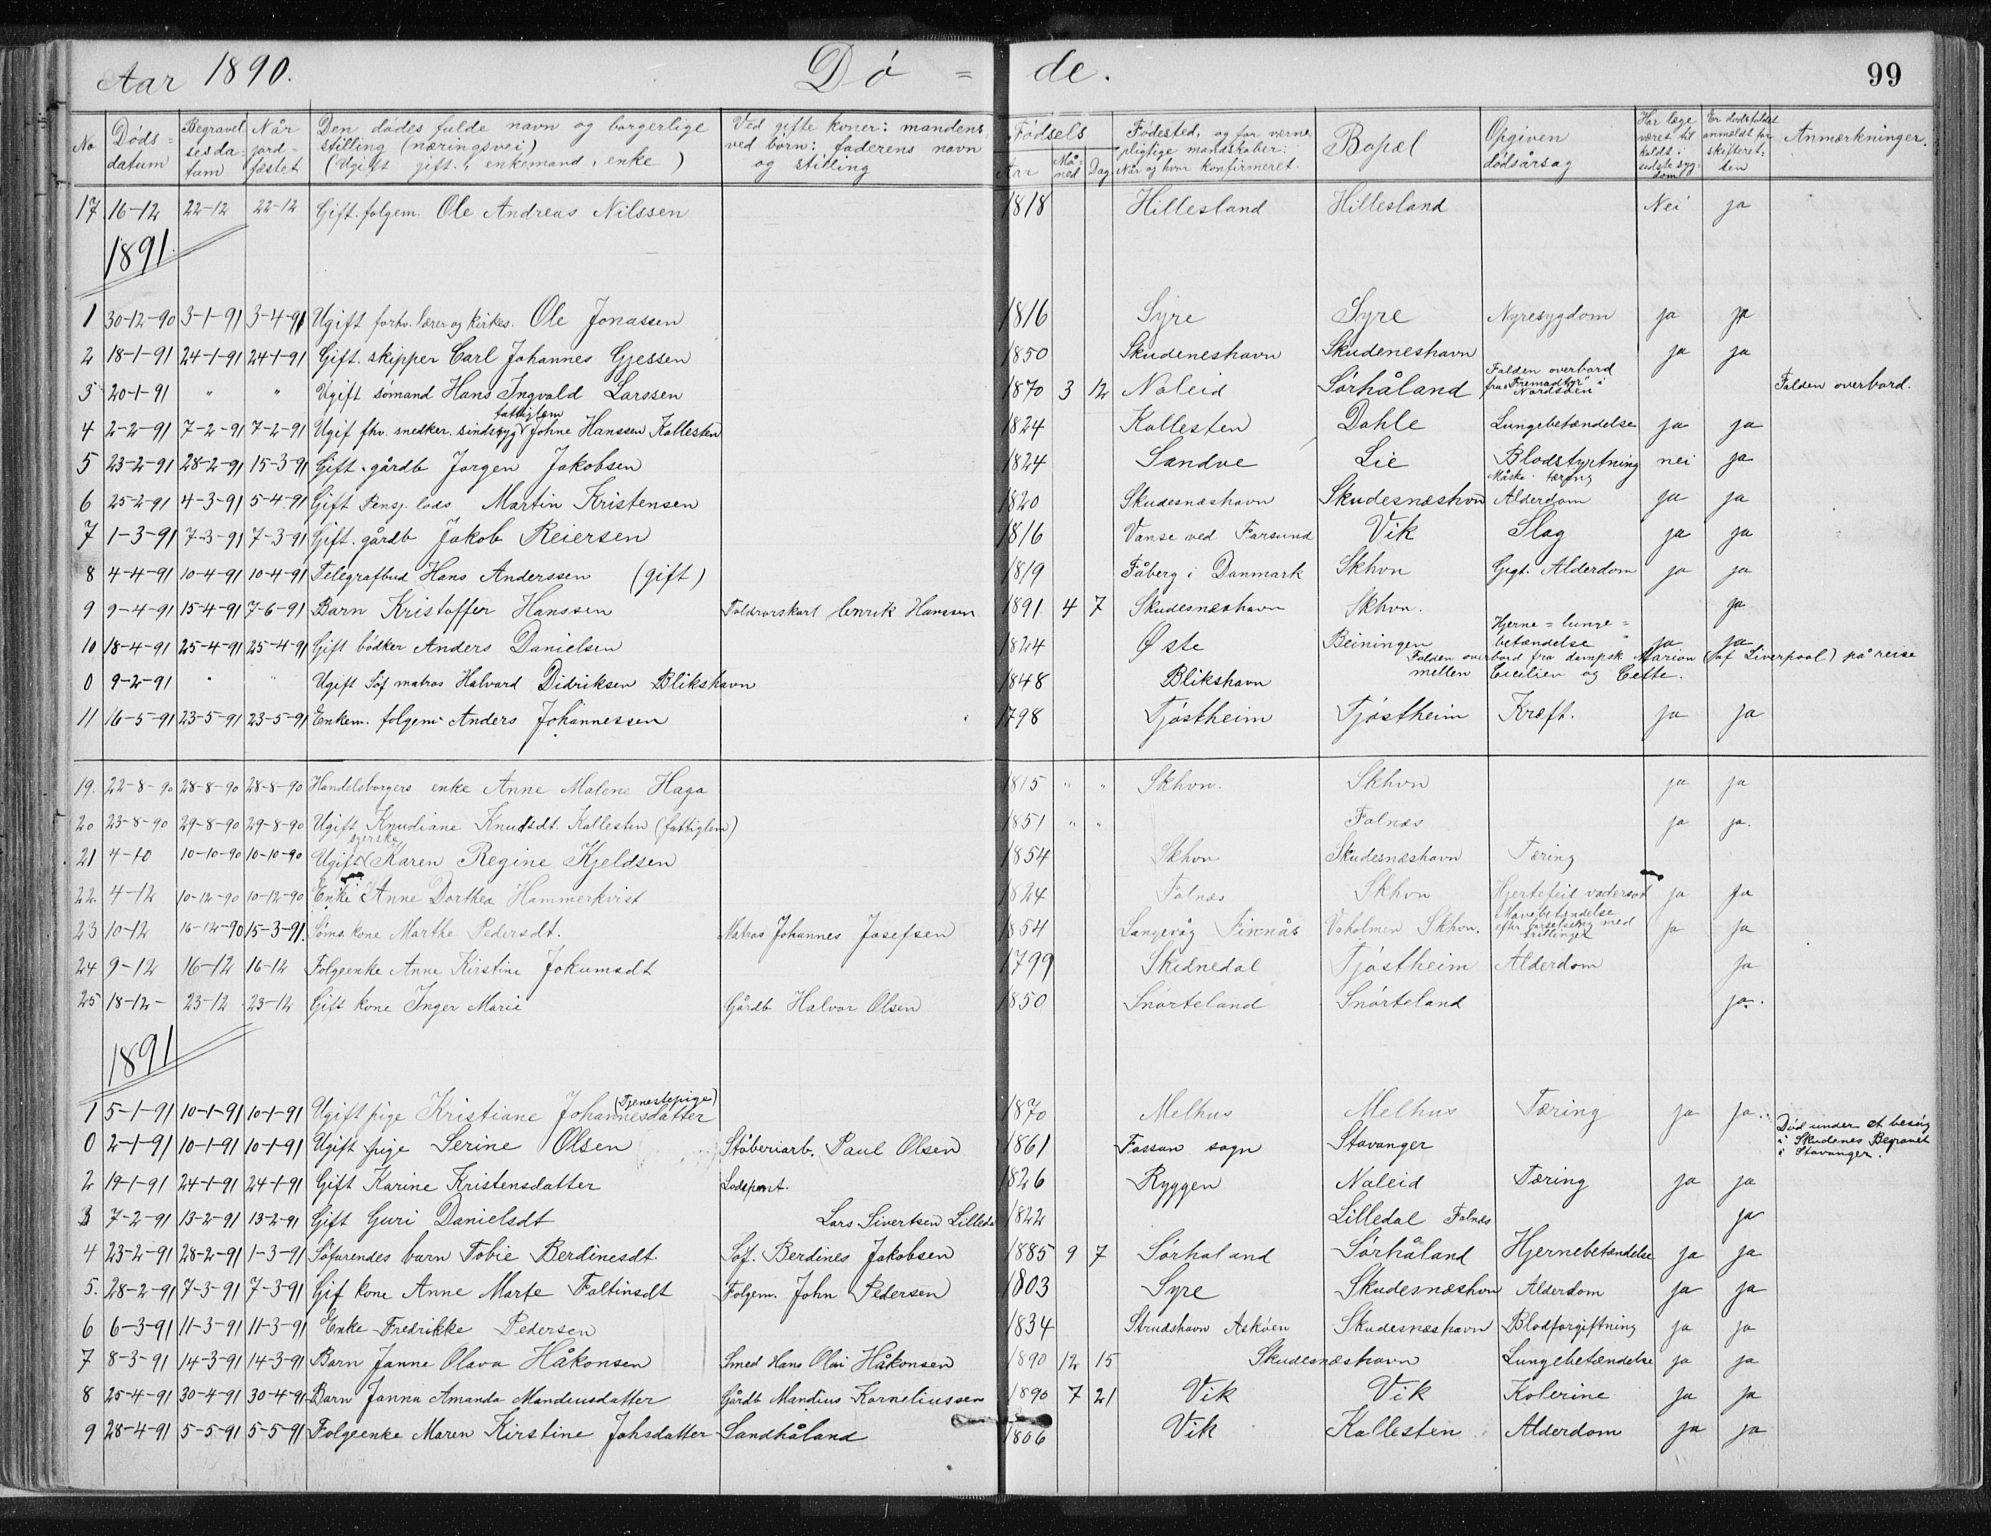 Aar 1890. Dø = de. 99
No Døds-datum Begravelsesdatum Når jordfæstet Den dødes fulde navn og borgerlige stilling (næringsvei) (Ugift, gift, enkemand, enke) Ved gifte koner: mandens, ved børn: faderens navn og stilling Fødsels Aar Måned Dag Fødested, og for værnepligtige mandskaber: Når og hvor konfirmeret. Bopæl Opgiven dødsårsag Har læge været tilkaldt i sidste sygdom Er dødsfaldet anmeldt for skifteretten Anmærkninger.
17 16-12 22-12 22-12 Gift. folgem. Ole Andreas Nilssen 1818 Hillesland Hillesland Nei ja
1891.
1 30-12-90 3-1-91 3-4-91 Ugift forhv. lærer og kirkes. Ole Jonassen 1816 Syre Syre Nyresygdom ja ja
2 18-1-91 24-1-91 24-1-91 Gift. skipper Carl Johannes Gjessen 1850 Skudeneshavn Skudeneshavn ja ja
3 20-1-91 " " Ugift sømand Hans Ingvald Larssen 1870 3 12 Naleid Sørhåland Falden overbord fra "Fremad" i Nordsøen Falden overbord.
4 2-2-91 7-2-91 7-2-91 Ugif fhv. snedker. sindssyg fattiglem Johne Hanssen Kallesten 1824 Kallesten Dahle Lungebetændelse ja ja
5 23-2-91 28-2-91 15-3-91 Gift. gårdb Jørgen Jakobsen 1824 Sandve Lie Blodstyrtning Måske tæring nei ja
6 25-2-91 4-3-91 5-4-91 Gift Pensj. lods Martin Kristensen 1820 Skudesnæshavn Skudesnæshvn Alderdom ja ja
7 1-3-91 7-3-91 7-3-91 Gift. gårdb Jakob Reiersen 1816 Vanse ved Farsund Vik Slag ja ja
8 4-4-91 10-4-91 10-4-91 Telegrafbud Hans Anderssen (gift) 1819 Fåberg i Danmark Skhvn Gigt. Alderdom ja ja
9 9-4-91 15-4-91 7-6-91 Barn Kristoffer Hanssen Henrik Hanssen 1891 4 7 Skudesnæshavn Skhvn. ja
10 18-4-91 25-4-91 25-4-91 Gift bødker Anders Danielsen 1824 Øste Beiningen Hjerne = lunge = betændelse ja ja
0 9-2-91 " " Ugift Søf matros Halvard Didriksen Blikshavn 1848 Blikshavn Falden overbord fra dampsk. Marion (af Liverpool) på reise mellem Cicilien og Cette.
11 16-5-91 23-5-91 23-5-91 Enkem. folgem. Anders Johannessen 1798 Tjøstheim Tjøstheim Kræft. ja ja
19. 22-8-90 28-8-90 28-8-90 Handelsborgers enke Anne Malene Haga 1815 " " Skhvn. Skhvn ja ja
20 23-8-90 29-8-90 29-8-90 Ugift Knudiane Knudsdt. Kallesten (fattiglem) 1851 " " Falnæs ja ja.
21 4-10 10-10-90 10-10-90 Ugift syerske Karen Regine Kjeldsen 1854 Skhvn Skudesnæshavn Tæring
22. 4-12 10-12-90 10-12-90 Enke Anne Dorthea Hammerkvist 1824 Falnæs Skhvn Hjertefeil vadersot ja ja
23 10-12 16-12-90 15-3-91. Søms. kone Marthe Pedersdt. Matros Johannes Josefsen 1854 Langevåg Finnås Vaholmen Skhvn. Mavebetændelse efter barselseng med trillinger ja ja
24 9-12 16-12 16-12 Folgeenke Anne Kirstine Jokumsdt 1799 Skednedal Tjøstheim Alderdom ja
25 18-12- 23-12 23-12 Gift kone Inger Marie Gårdb Halvor Olsen 1850 Snørteland Snørteland ja.
1891
1 5-1-91 10-1-91 10-1-91 Ugift pige Kristiane Johannesdatter (Tjenestepige) 1870 Melhus Melhus Tæring ja ja
0 2-1-91 10-1-91 10-1-91 Ugift pige Serine Olsen Støberiarb. Paul Olsen 1861 Fossan sogn Stavanger Død under et besøg i Skudenes Begravet i Stavanger.
2 19-1-91 24-1-91 24-1-91 Gift Karine Kristensdatter 1826 Ryggen Naleid Tæring ja ja
3 7-2-91 13-2-91 13-2-91 Gift Guri Danielsdt Lars Sivertsen Lilledal 1822 Lilledal Falnæs ja
4 23-2-91 28-2-91 1-3-91 Søfarendes barn Tobie Berdinesdt. Søf. Berdines Jakobsen 1885 9 7 Sørhaland Sørhåland Hjernebetændelse ja ja
5. 28-2-91 7-3-91 7-3-91 Gif kone Anne Marte Faltinsdt Folgem. John Pedersen 1803 Syre Skudesnæshvn Alderdom ja ja
6 6-3-91 11-3-91 11-3-91 Enke Fredrikke Pedersen 1834 Strudshavn Askøen Skudesnæshavn Blodforgiftning ja ja
7 8-3-91 14-3-91 14-3-91 Barn Janne Olava Håkonsen Smed Hans Olai Håkonsen 1890 12 15 Skudesnæshavn Lungebetændelse ja ja
8 25-4-91 30-4-91 30-4-91 Barn Janna Amanda Mandiusdatter Gårdb Mandius Korneliussen 1890 7 21 Vik Vik Kolerine ja ja
9 28-4-91 5-5-91 5-5-91 Folgeenke Maren Kirstine Johsdatter Sandhåland 1806 Vik Kallesten Alderdom ja ja